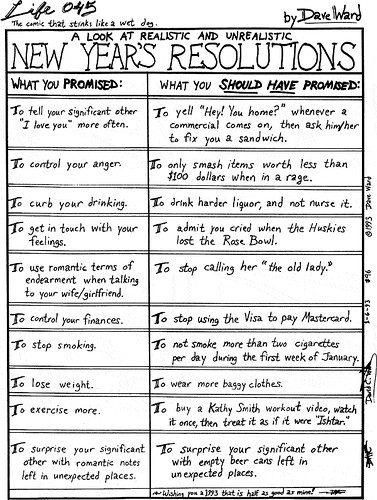 Life 045
The comic that stinks like a wet dog.
by Dave Ward
A LOOK AT REALISTIC AND UNREALISTIC
NEW YEAR'S RESOLUTIONS
WHAT YOU PROMISED:
WHAT YOU SHOULD HAVE PROMISED:
To tell your significant other
"I love you" more often.
To yell "Hey! You home?" whenever a
commercial comes on, then ask him/her
to fix you a sandwich.
To control your anger.
To only smash items worth less than
$100 dollars when in a rage.
To curb your drinking.
To drink harder liquor, and not nurse it.
To get in touch with your
feelings.
To admit you cried when the Huskies
lost the Rose Bowl.
To use romantic terms of
endearment when talking
to your wife/girlfriend.
To stop calling her "the old lady."
To control your finances.
To stop using the Visa to pay Mastercard.
To stop smoking.
To not smoke more than two cigarettes
per day during the first week of January.
To lose weight.
To wear more baggy clothes.
To exercise more.
To buy a Kathy Smith workout video, watch
it once, then treat it as if it were "Ishtar."
To surprise your significant
other with romantic notes
left in unexpected places.
To surprise your significant other
with empty beer cans left in
unexpected places.
~Wishing you a 1993 that is half as good as mine!~
©1993 Dave Ward
#96
1-6-93